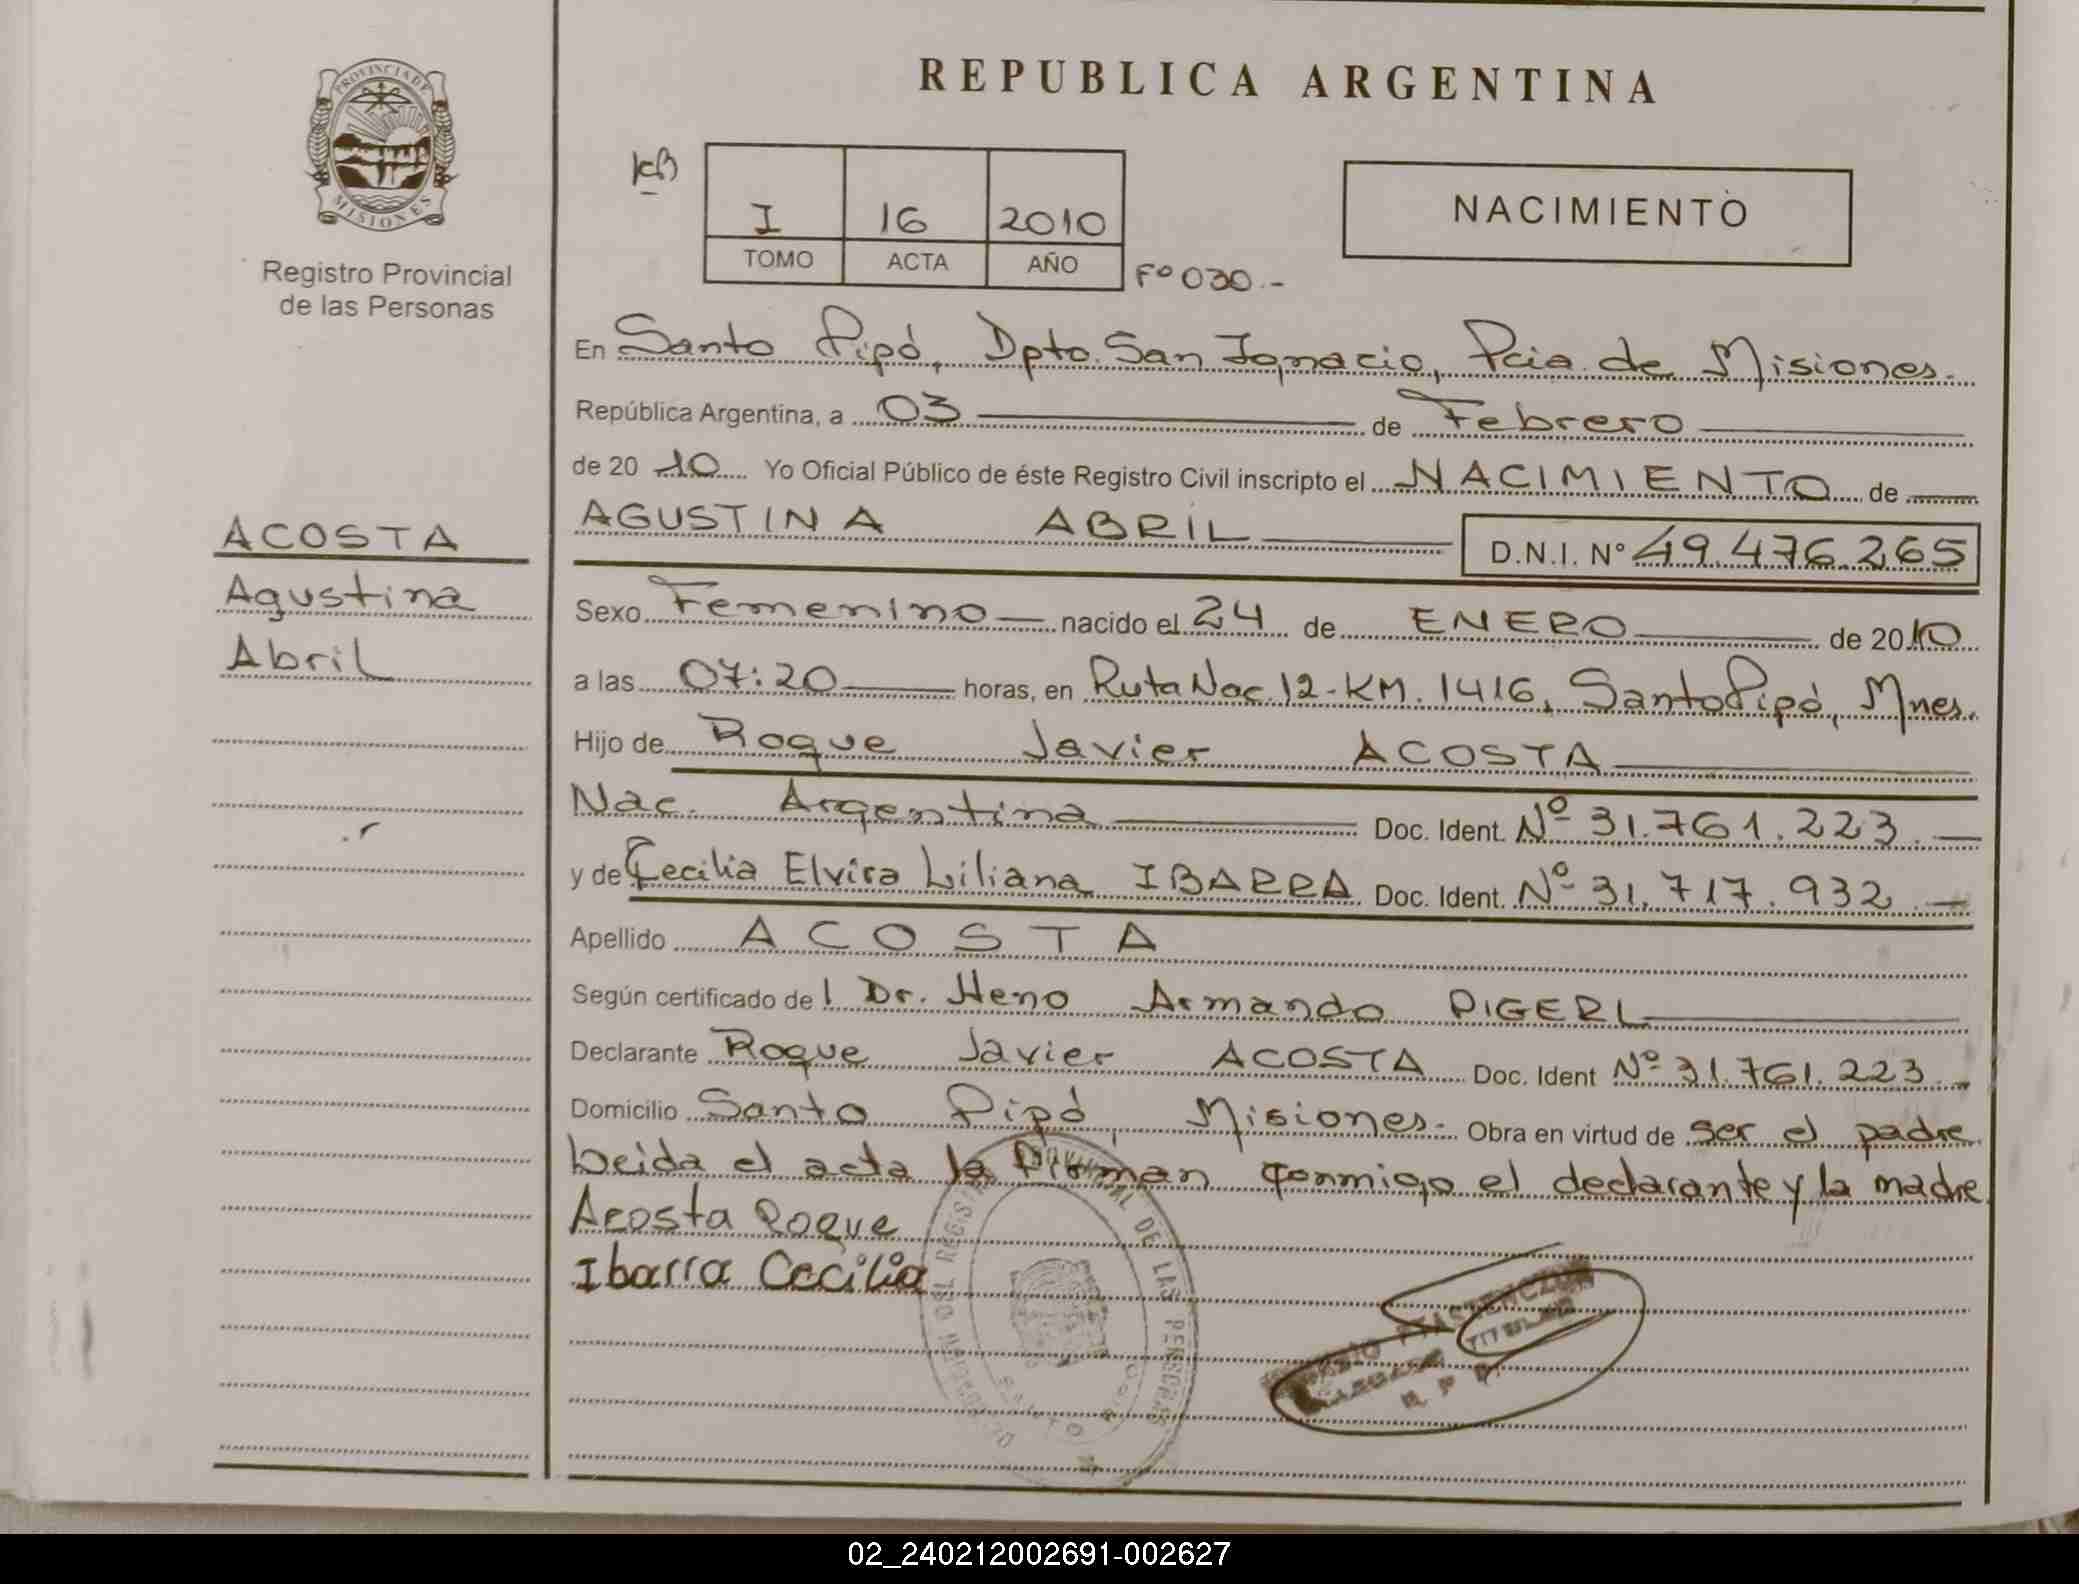 REPUBLICA ARGENTINA
PROVINCIA DE
MISIONES
Registro Provincial
de las Personas
I 16 2010
TOMO ACTA AÑO
Fº 030.-
NACIMIENTO
En Santo Pipó, Dpto. San Ignacio, Pcia. de Misiones.
República Argentina, a 03 de Febrero
de 20 10 Yo Oficial Público de éste Registro Civil inscripto el NACIMIENTO de
AGUSTINA ABRIL D.N.I. Nº 49.476.265
ACOSTA
Agustina
Abril
Sexo Femenino nacido el 24 de ENERO de 2010
a las 07:20 horas, en Ruta Nac. 12-KM. 1416, Santo Pipó, Mnes.
Hijo de Roque Javier ACOSTA
Nac. Argentina Doc. Ident. Nº 31.761.223.
y de Cecilia Elvira Liliana IBARRA Doc. Ident. Nº 31.717.932.
Apellido ACOSTA
Según certificado de l Dr. Heno Armando PIGERL
Declarante Roque Javier ACOSTA Doc. Ident Nº 31.761.223.
Domicilio Santo Pipó, Misiones. Obra en virtud de ser el padre
Leida el acta la firman conmigo el declarante y la madre
Acosta Roque
Ibarra Cecilia
DE LAS PERSONAS
TITULAR
02_240212002691-002627